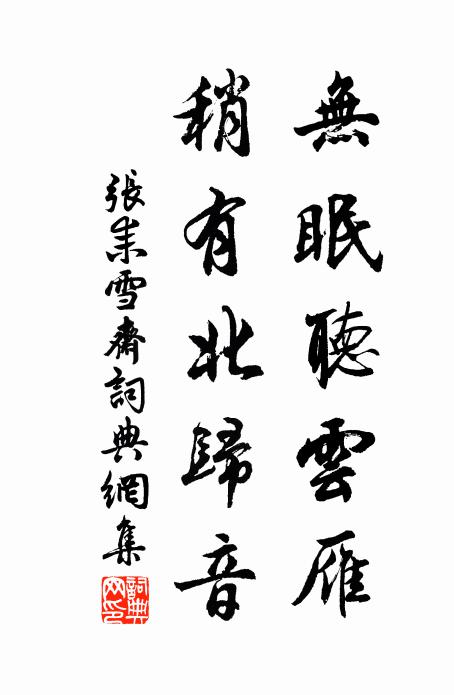 無眠聽雲雁
稍有北歸音
張耒雪齋詞典網集
詞典
网印